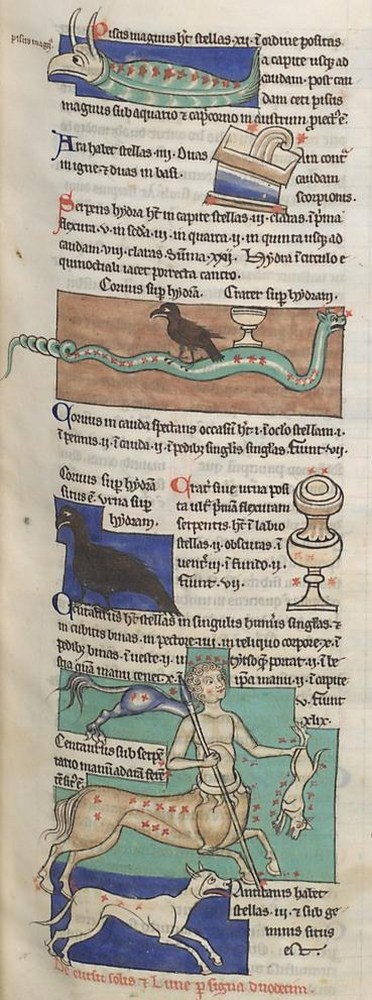 piscis magn9.
Piscis magnus ht stellas.xij. i ordine positas
a capite usq; ad
caudam. post cau
dam ceti piscis
magnus sub aquario & capcorno in austrum
Ara habet stellas .iiij. Duas
in igne. & duas in basi.
Ara cont
caudam
scorpionis.
Serpens hydra ht in capite stellas .iij. claras. i pma
flexura .v. in scda .iij. in quarta .ij. in quinta usq; ad
caudam .viij. claras. Suma .xxij. Hydra i circulo e
quinoctiali iacet porrecta cancro.
Coruus sup hydra. Crater sup hydram.
Coruus in cauda spectans occasu ht. i oclo stellam .i.
i pennis .ij. i cauda .ij. i pedib; singlis singlas. fiunt .vij.
Coruus sup hydra
situs e. Vrna sup
hydram.
Crat siue urna posi
ta flexuram
serpentis. ht i labio
stellas .ij. obscuras. i
uent .iij. i fundo .ij.
fiunt .vij.
Centaurus ht stellas in singulis humis singlas. &
in cubitis binas. in pectore .iiij. in reliquo corpore .x. i
pedib; binas. i ueste .ij. portat .ij. i
qua manu tenet ipa manu .ij. i capite
.v. fiunt
Centaurus sub serpe
Anticanis habet
stellas .iij. & sub ge
minis situs
est.
De cursu solis & Lune p signa duodecim.